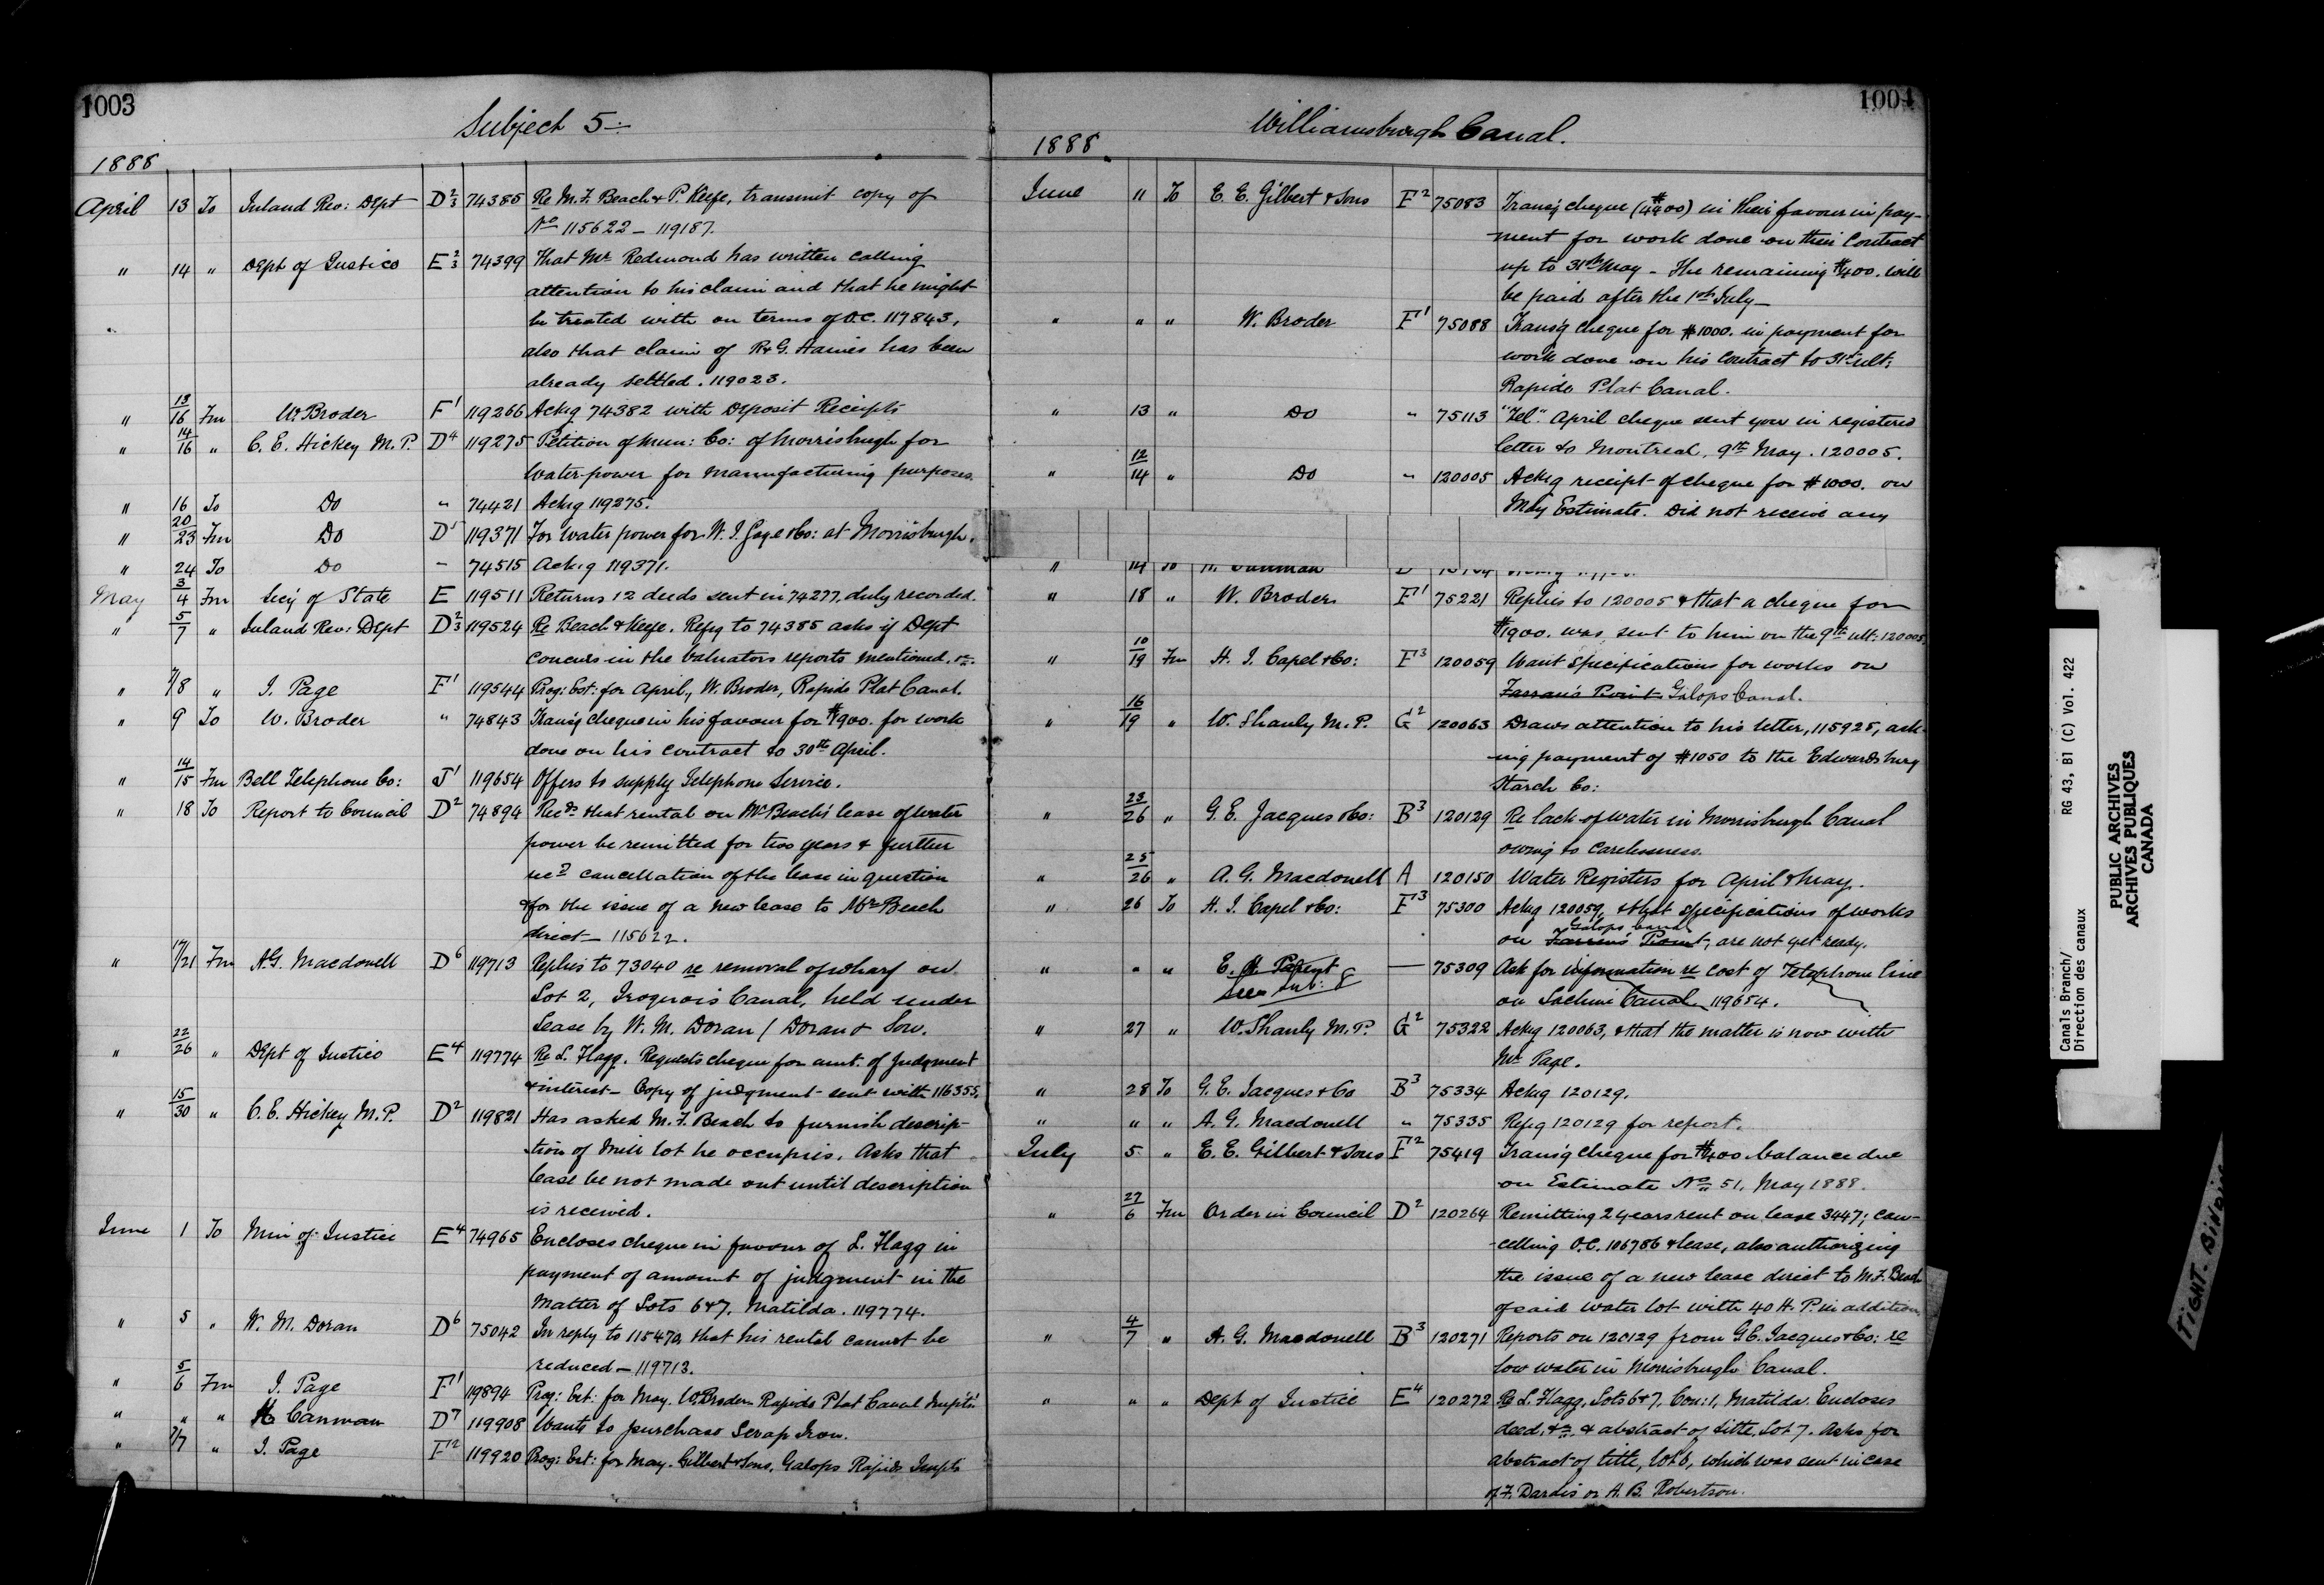 1003
Subject 5
1888
April 13 To Inland Rev: Dept D 2/3 74385 Re M. F. Beach & P. Keefe, transmit copy of
No 115622 - 119187.
" 14 " Dept of Justice E 2/3 74399 That Mr Redmond has written calling
attention to his claim and that he might
be treated with on terms of O.C. 117843,
also that claim of R & G. Haines has been
already settled. 119023.
" 13/16 Fm W. Broder F1 119266 Ackg 74382 with Deposit Receipts
" 14/16 " C. E. Hickey M. P. D4 119275 Petition of Mun: Co: of Morrisburgh for
Water-power for Manufacturing purposes.
" 16 To Do " 74421 Ackg 119275.
" 20/23 Fm Do D1 119371 For water power for W. I. Gage & Co: at Morrisburgh.
" 24 To Do - 74515 Ackg 119371.
May 3/4 Fm Secy of State E 119511 Returns 12 deeds sent in 74277, duly recorded.
" 5/7 " Inland Rev: Dept D 2/3 119524 Re Beach & Keefe. Refg to 74385 asks if Dept
concurs in the Valuators reports mentioned. &c.
" 7/8 " J. Page F1 119544 Prog: Est: for April, W. Broder, Rapide Plat Canal.
" 9 To W. Broder " 74843 Transg cheque in his favour for $1900. for work
done on his contract to 30th April.
" 14/15 Fm Bell Telephone Co: J1 119654 Offers to supply Telephone Service.
" 18 To Report to Council D2 74894 Recds that rental on Mr Beach's lease of water
power be remitted for two years & further
cancellation of the lease in question
& for the issue of a new lease to Mr Beach
direct - 115622.
" 17/21 Fm A. G. Macdonell D6 119713 Replies to 73040 re removal of wharf on
Lot 2, Iroquois Canal, held under
Lease by W. M. Doran / Doran & Son.
" 22/26 " Dept of Justice E4 119774 Re L. Flagg. Requests cheque for amt. of Judgment
& interest - Copy of judgment sent with 116355.
" 15/30 " C. E. Hickey M. P. D2 119821 Has asked M. F. Beach to furnish descrip-
tion of Mill lot he occupies. Asks that
lease be not made out until description
is received.
June 1 To Min of Justice E4 74965 Encloses cheque in favour of L. Flagg in
payment of amount of judgment in the
Matter of Lots 6 & 7, Matilda. 119774.
" 5 " W. M. Doran D6 75042 In reply to 115470, that his rental cannot be
reduced - 119713.
" 5/6 Fm J. Page F1 119894 Prog: Est: for May. W. Broder Rapide Plat Canal Impts
" " " Canman D7 119908 Wants to purchase Scrap Iron.
" 7/7 " J. Page F2 119920 Prog: Est: for May. Gilbert & Sons, Galops Rapids Impts
1004
Williamsburgh Canal.
1888.
June 11 To E. E. Gilbert & Sons F2 75083 Transg cheque in their favour in pay-
ment for work done on their Contract
up to 31st May - The remaining $400. will
be paid after the 1st July -
" " " W. Broder F1 75088 Transg cheque for $1000. in payment for
work done on his Contract to 31st ult:
Rapide Plat Canal.
" 13 " Do " 75113 "Tel". April cheque sent you in registered
letter to Montreal, 9th May. 120005.
" 12/14 " Do " 120005 Ackg receipt of cheque for $1000. on
May Estimate. Did not receive any
" 14 To Canman
" 18 " W. Broder F1 75221 Replies to 120005 & that a cheque for
$1900. was sent to him on the 9th ult: 120005.
" 10/19 Fm H. I. Capel & Co: F3 120059 Want Specifications for works on
Farran's Point Galops Canal.
" 16/19 " W. Shanly M. P. G2 120063 Draws attention to his letter, 115925, ask-
ing payment of $1050 to the Edwardsburg
Starch Co:
" 23/26 " G. E. Jacques & Co: B3 120129 Re lack of water in Morrisburgh Canal
owing to Carelessness.
" 25/26 " A. G. Macdonell A 120150 Water Registers for April & May.
" 26 To H. I. Capel & Co: F3 75300 Ackg 120059, & that specifications of works
on Farran's Point Galops Canal, are not yet ready.
" " " E. H. Parent - 75309 Ask for information re cost of Telephone line
See Sub: 8 on Lachine Canal 119654.
" 27 " W. Shanly M. P. G2 75322 Ackg 120063, & that the matter is now with
Mr Page.
" 28 To G. E. Jacques & Co B3 75334 Ackg 120129.
" " " A. G. Macdonell " 75335 Refg 120129 for report.
July 5 " E. E. Gilbert & Sons F2 75419 Transg cheque for $400 balance due
on Estimate No 51, May 1888.
" 27/6 Fm Order in Council D2 120264 Remitting 2 years rent on lease 3447; can-
celling O.C. 106786 & lease, also authorizing
the issue of a new lease direct to M. F. Beach
of said water lot with 40 H. P. in addition.
" 4/7 " A. G. Macdonell B3 120271 Reports on 120129 from G. E. Jacques & Co: re
low water in Morrisburgh Canal.
" " " Dept of Justice E4 120272 Re L. Flagg, Lots 6 & 7, Con: 1, Matilda. Encloses
deed, &c. & abstract of title, Lot 7. Asks for
abstract of title, lot 6, which was sent in case
of F. Dardis or A. B. Robertson.
Canals Branch/
Direction des canaux
RG 43, B1 (C) Vol. 422
PUBLIC ARCHIVES
ARCHIVES PUBLIQUES
CANADA
TIGHT BINDING